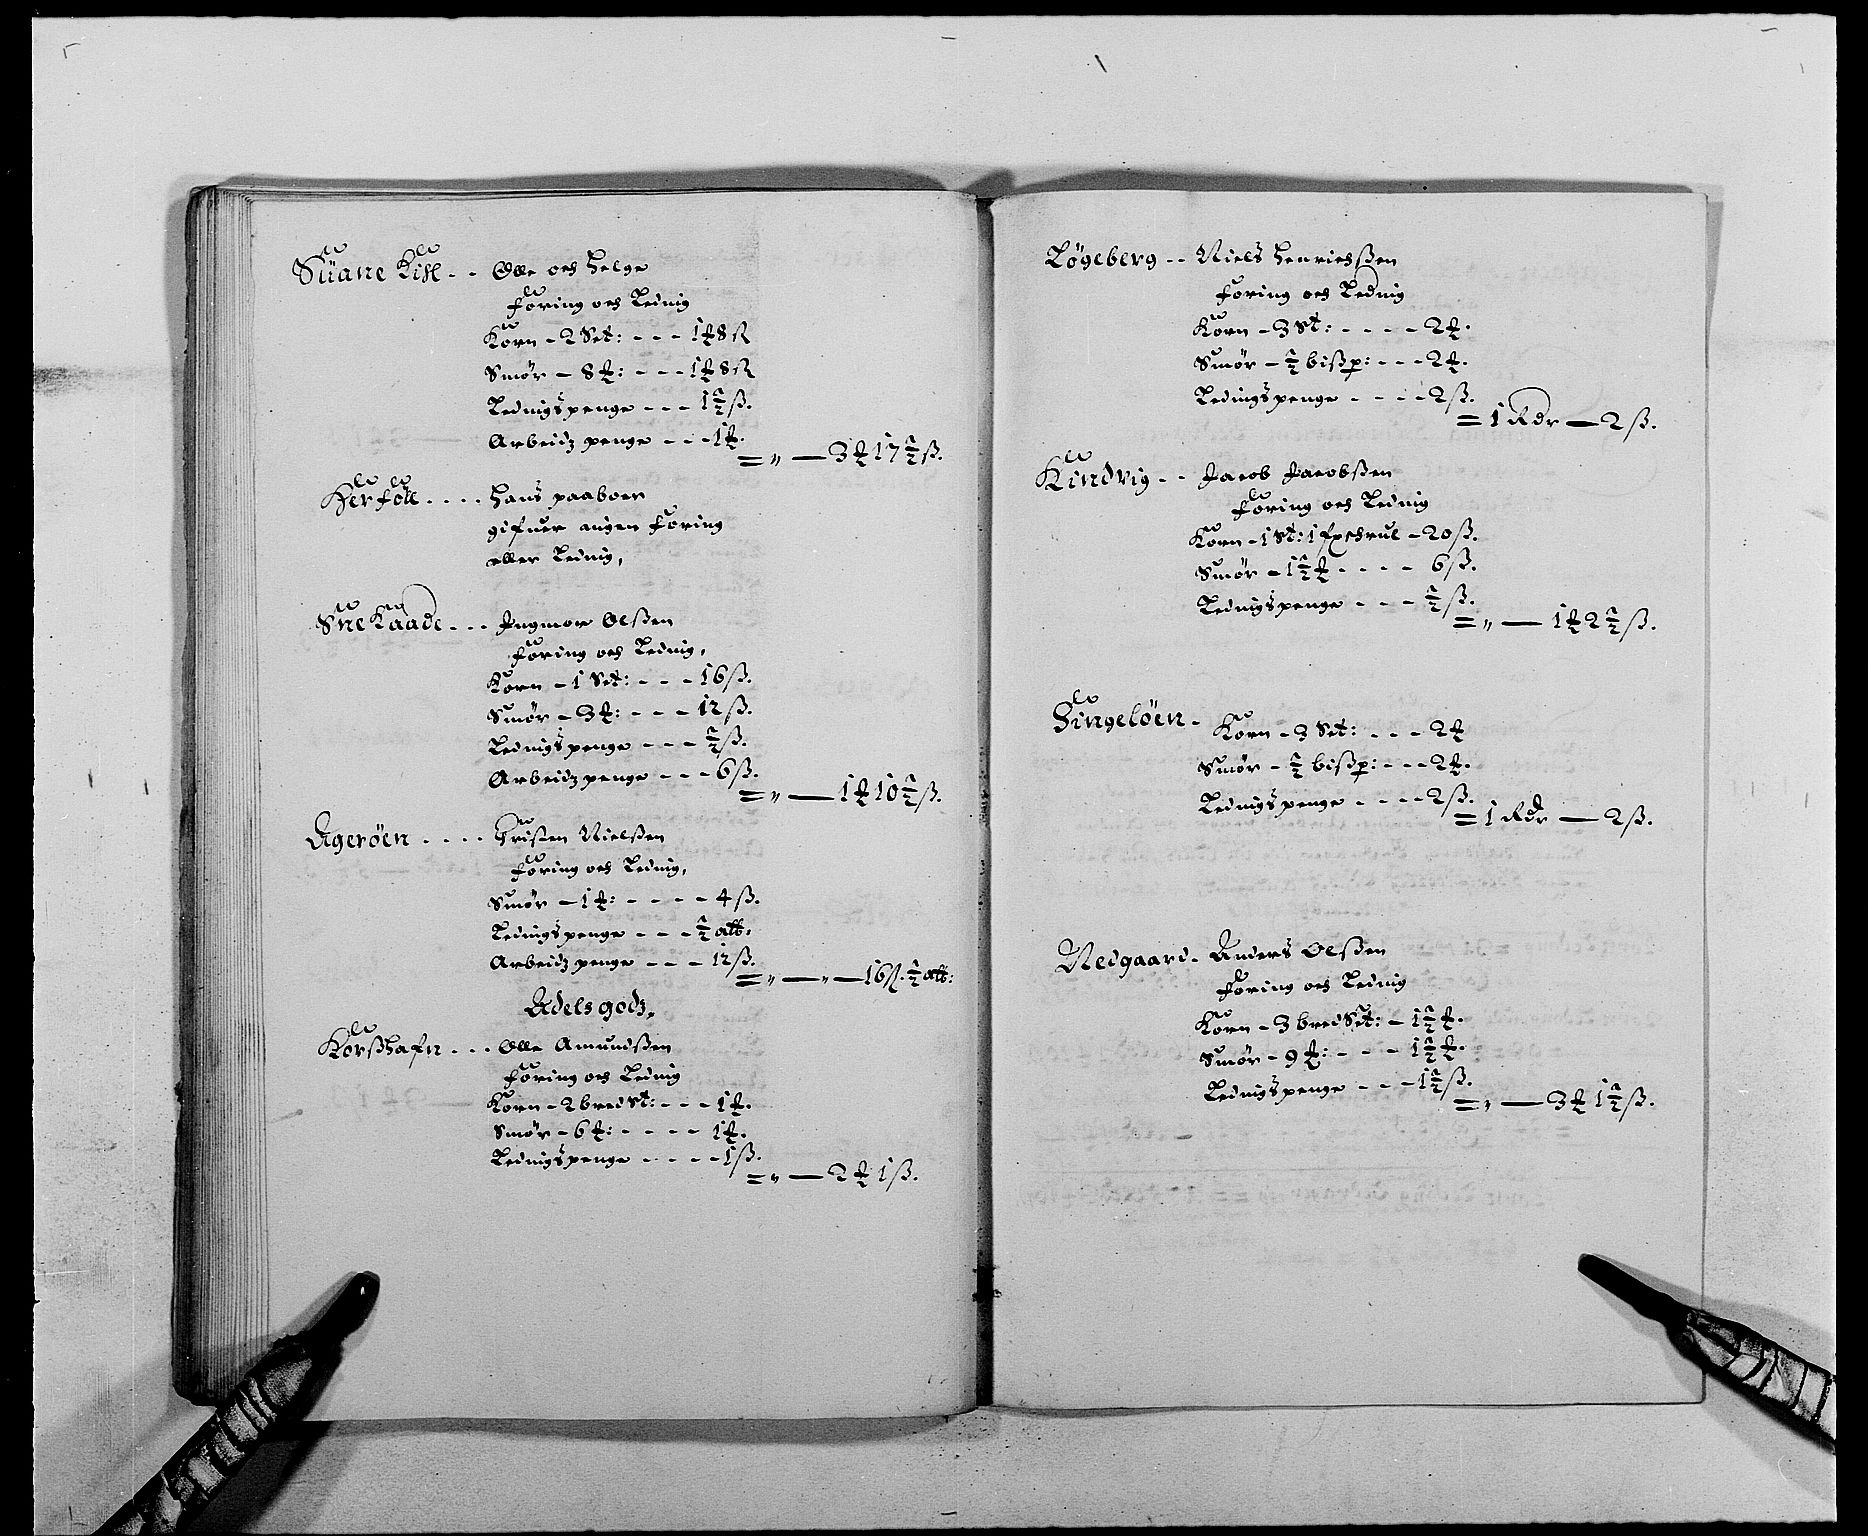 Süane Kihl - - Olle och Helge
Foring och Leding
Korn - 2 Set: - - - 1 ℔ 8 ß
Smør - 8 ℔: - - - 1 ℔ 8 ß
Ledingspenge - - - 1½ ß.
Arbeidz penge - - - 1 ℔.
= „ — 3 ℔ 17½ ß.
Herföll - - - - Hans paaboer
gifuer ingen Foring
eller Leding,
Snekaade - - - Ingmor Olßen
Foring och Leding,
Korn - 1 Set: - - - 16 ß.
Smør - 3 ℔: - - - 12 ß.
Ledingspenge - - - ½ ß.
Arbeidzpenge - - - 6 ß.
= „ — 1 ℔ 10½ ß.
Agerøen - - - - Christen Nielßen
Foring och Leding,
Smør - 1 ℔: - - - - 4 ß.
Ledingspenge - - - ½ alb:
Arbeidz penge - - - 12 ß.
= „ — „ — 16 ß. ½ alb:
Adels godz,
Korßhafn - - - Olle Amundßen
Foring och Leding
Korn - 2 bred St: - - - 1 ℔.
Smør - 6 ℔: - - - - 1 ℔.
Ledingspenge - - - - 1 ß.
= „ — 2 ℔ 1 ß.
Løgeberg - - Niels Henrichßen
Foring och Leding
Korn - 3 St: - - - - 2 ℔.
Smør - ½ bißp: - - - 2 ℔.
Ledingspenge - - - - 2 ß.
= 1 Rdr — 2 ß.
Kindvig - - Jacob Jacobßen
Foring och Leding
Korn - 1 St: 1 - 20 ß.
Smør - 1½ ℔ - - - - 6 ß.
Ledingspenge - - - ½ ß.
= „ — 1 ℔ 2½ ß.
Singeløen - Korn - 3 Set: - - - 2 ℔
Smør - ½ bißp: - - - 2 ℔.
Ledingspenge - - - - 2 ß.
= 1 Rdr — 2 ß.
Nedgaard - Anders Olßen
Foring och Leding
Korn - 3 bred Set: - 1½ ℔.
Smør - 9 ℔: - - - - 1½ ℔.
Ledingspenge - - - 1½ ß.
= „ — 3 ℔ 1½ ß.